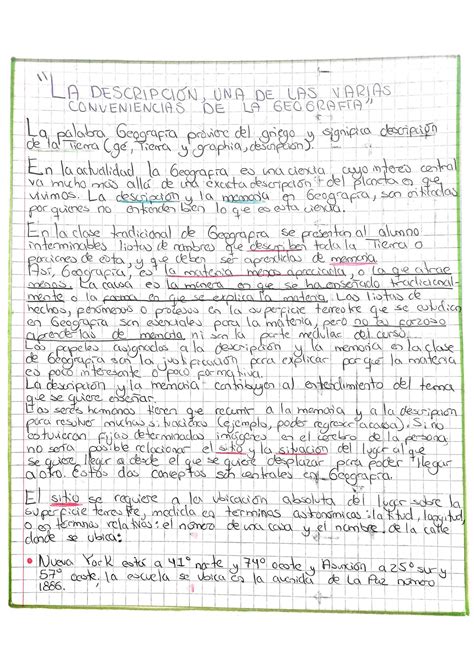 "LA DESCRIPCIÓN, UNA DE LAS VARIAS
CONVENIENCIAS DE LA GEOGRAFÍA"
La palabra Geografía proviene del griego y significa descripción
de la Tierra (gé, Tierra y graphia, descripción).
En la actualidad la Geografía es una ciencia cuyo interés central
va mucho más allá de una exacta descripción del planeta en que
vivimos. La descripción y la memoria en Geografía, son criticadas
por quienes no entienden bien lo que es esta ciencia.
En la clase tradicional de Geografía se presentan al alumno
interminables listas de nombres que describen toda la Tierra o
porciones de esta, y que deben ser aprendidas de memoria
Así, Geografía, es la materia menos apreciada, o la que atrae
menos. La causa es la manera en que se ha enseñado tradicional-
mente o la forma en que se explica la materia. Las listas de
hechos, fenómenos o procesos en la superficie terrestre que se estudian
en Geografía son esenciales para la materia, pero no es forzoso
aprenderlas de memoria ni son la parte medular del curso.
Los papeles asignados a la descripción y la memoria en la clase
de Geografía son la justificación para explicar porqué la materia
es poco interesante o poco formativa.
La descripción y la memoria contribuyen al entendimiento del tema
que se quiere enseñar.
Los seres humanos tienen que recurrir a la memoria y a la descripcion
para resolver muchas situaciones (ejemplo, poder regresar a casa). Si no
estuvieran fijas determinadas imágenes en el cerebro de la persona,
no sería posible relacionar el sitio y la situación del lugar al que
se quiere llegar o desde el que se quiere desplazar para poder llegar
a otro. Estos dos conceptos son centrales en Geografía.
El sitio se requiere a la ubicación absoluta del lugar sobre la
superficie terrestre, medida en terminos astronómicos: latitud, longitud
o en términos relativos: el número de una casa y el nombre de la calle
donde se ubica:
• Nueva York está a 41° norte y 74° oeste y Asunción a 25° sur y
57° oeste, la escuela se ubica en la avenida de La Paz número
1866.